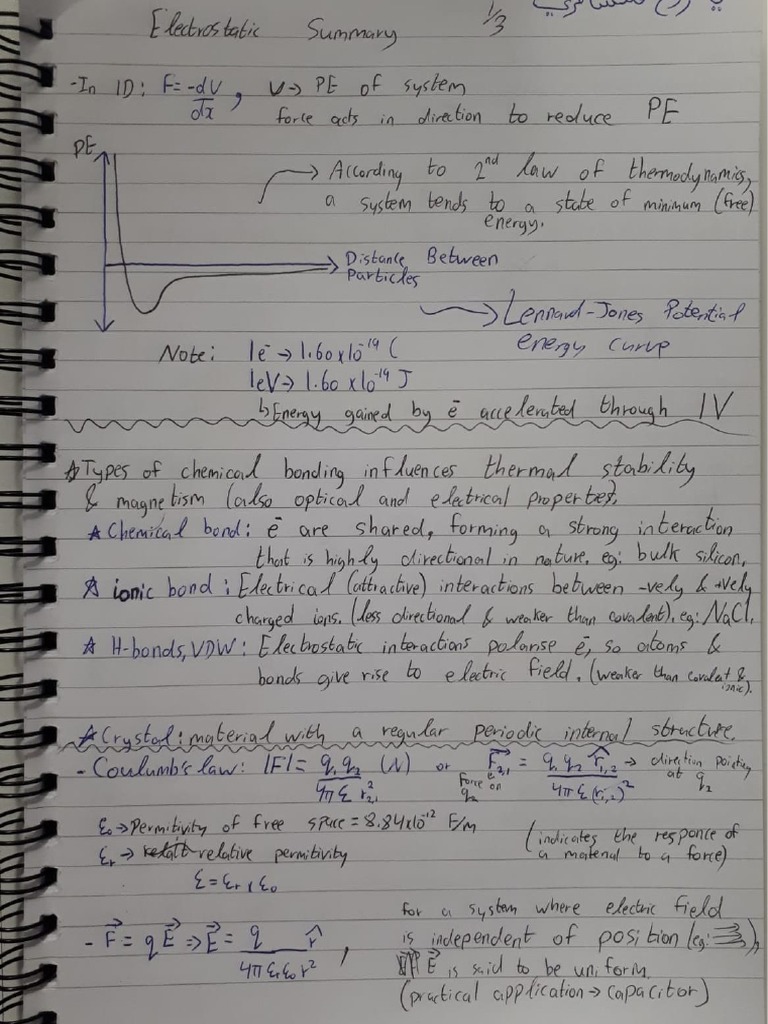 Electrostatic Summary
1/3
-In 1D: F = -dV/dx, V → PE of system
force acts in direction to reduce PE
PE
→ According to 2nd law of thermodynamics,
a system tends to a state of minimum (free)
energy.
Distance Between
Particles
→ Lennard-Jones Potential
energy curve
Note: 1e⁻ → 1.60x10⁻¹⁹ C
1eV → 1.60 x10⁻¹⁹ J
↳ Energy gained by e⁻ accelerated through 1V
☆Types of chemical bonding influences thermal stability
& magnetism (also optical and electrical properties).
☆ Chemical bond: e⁻ are shared, forming a strong interaction
that is highly directional in nature. eg: bulk silicon.
☆ ionic bond: Electrical (attractive) interactions between -vely & +vely
charged ions. (less directional & weaker than covalent). eg: NaCl.
☆ H-bonds, VDW: Electrostatic interactions polarise e⁻, so atoms &
bonds give rise to electric field. (weaker than covalent &
ionic).
☆Crystal: material with a regular periodic internal structure.
- Coulumb's law: |F| = q₁q₂/4πε r₂,₁² (N) or F⃗₂,₁ = q₁q₂ r̂₁,₂/4πε(r₁,₂)² → direction pointing
at q₂
Force on
q₂
ε₀ → Permitivity of free space = 8.84x10⁻¹² F/m
(indicates the responce of
a material to a force)
εᵣ → relative permitivity
ε = εᵣ, ε₀
- F⃗ = qE⃗ ⇒ E⃗ = q/4πεᵣε₀r² r̂,
for a system where electric field
is independent of position (eg: ),
E⃗ is said to be uniform.
(practical application → capacitor)